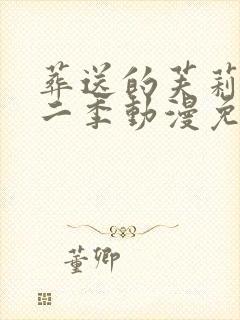 葬送的芙莉
二季動漫免
董卿